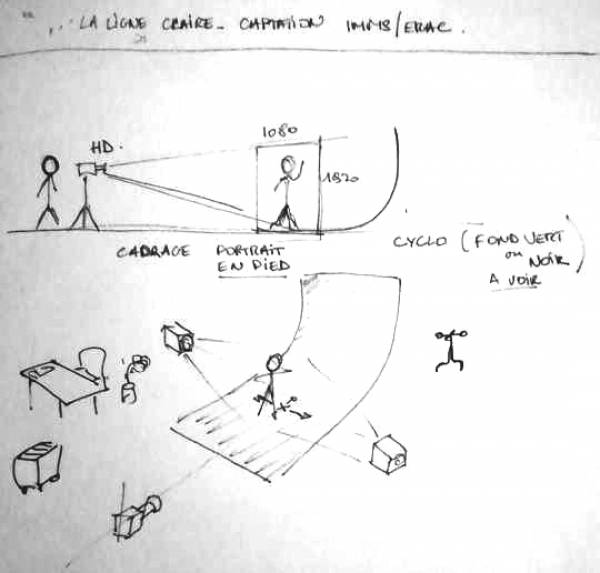 LA LIGNE CLAIRE - CAPTATION IMMS/ERAC.
HD.
1080
1920
CADRAGE PORTRAIT
EN PIED
CYCLO (FOND VERT
ou NOIR)
A VOIR